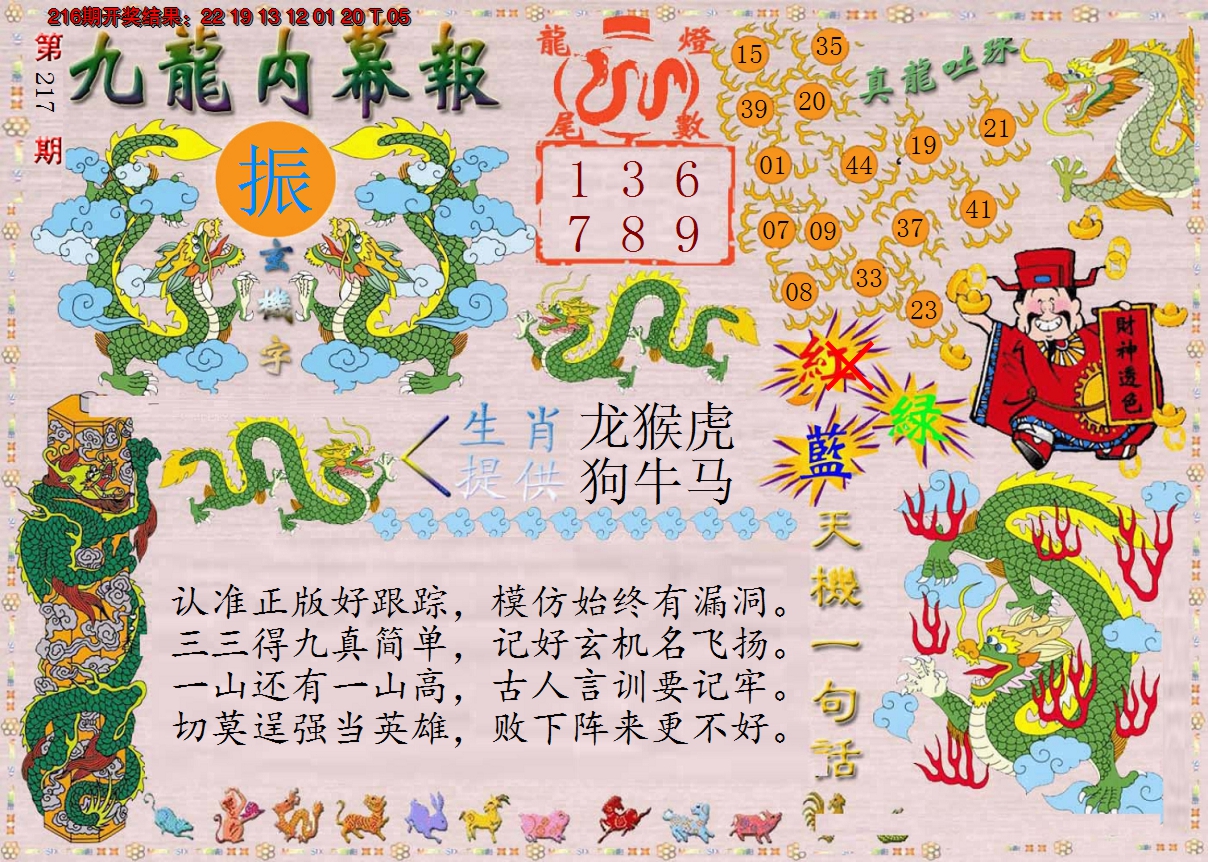 216期开奖结果：22 19 13 12 01 20 T 05
第217期
九龍内幕報
振
玄機字
龍燈
尾數
1 3 6
7 8 9
真龍吐珠
15
35
39
20
19
21
01
44
41
07
09
37
33
08
23
財神透色
紅
綠
藍
生肖 龙猴虎
提供 狗牛马
天機一句话
认准正版好跟踪，模仿始终有漏洞。
三三得九真简单，记好玄机名飞扬。
一山还有一山高，古人言训要记牢。
切莫逞强当英雄，败下阵来更不好。